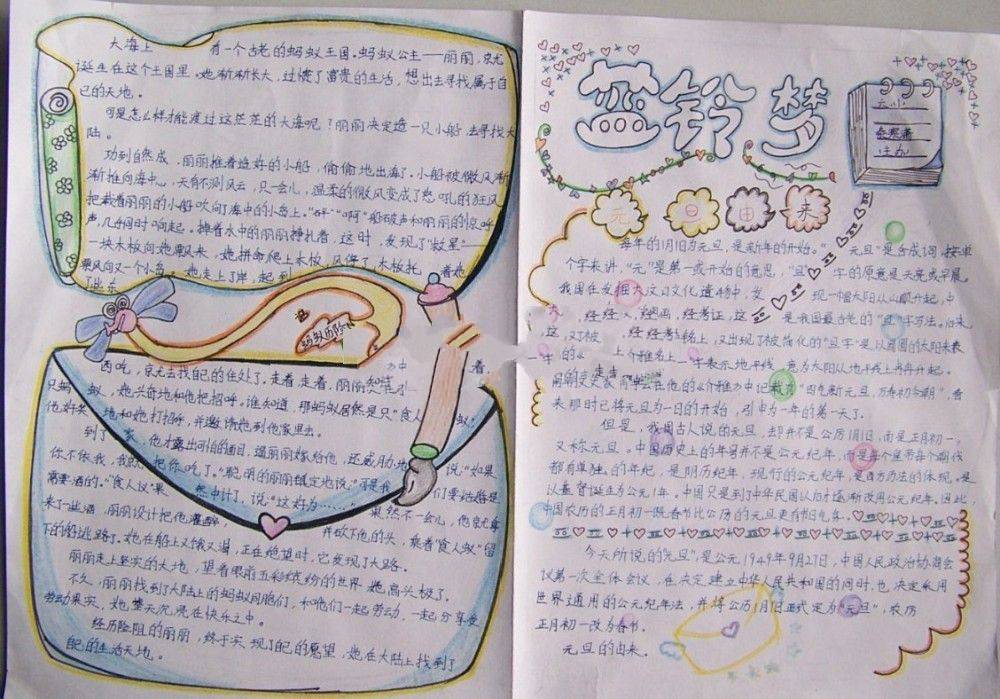 大海上 有一个古老的蚂蚁王国。蚂蚁公主——丽丽,
诞生在这个王国里。她渐渐长大,过惯了富贵的生活,想出去寻找属于自
己的天地。
可是怎么样才能渡过这茫茫的大海呢?丽丽决定造一只小船,去寻找大
陆。
功到自然成,丽丽推着造好的小船,偷偷地出海了。小船被微风渐
渐推向海中。天有不测风云,只一会儿,温柔的微风变成了怒吼的狂风
把载着丽丽的小船吹向了海中的小岛上。"砰""啊"船破声和丽丽的惊呼
声几乎同时响起。掉着水中的丽丽挣扎着,这时,发现了"救星"——
一块木板向她飘来,她拼命爬上木板,风停了,木板托 着她
乘风向又一个小岛。她走上了岸,
蚂蚁历险
西吃,就先去找自己的住处了。走着走着,丽丽 着,
只蚂 蚁。她兴奇地和他把招呼。谁知道,那蚂蚁居然是只"食人 蚁!
他好 地和她打招呼,并邀请她到他家里去。
到了 家,他才露出可怕的面目,逼丽丽嫁给他,还威胁地 说:"如果
你不依我,我就 把你吃了。"聪明的丽丽镇定地说:"可是我 们要结婚是
需要酒的。"食人蚁"果 然中计了,说:"这好办…… 果然不一会儿,他就
来了一些酒,丽丽设计把他灌醉, 并砍下他的头,乘着"食人蚁"留
下的船逃路了。她在船上又饿又渴,正在绝望时,它发现了大路。
丽丽走上坚实的大地,望着眼前五彩缤纷的世界,她高头极了。
不久,丽丽找到了大陆上的蚂蚁同胞们,和他们一起劳动,一起分享受
劳动果实。她整天沉浸在快乐之中。
经历险阻的丽丽,终于实现了自己的愿望,她在大陆上找到了
自己的生活天地。
蓝铃梦
六小
主办
元旦由来
每年的1月1日为元旦,是新年的开始。" 元旦"是合成词,按单
个字来讲,"元"是第一或开始的意思,"旦" 字的原意是天亮或早晨。
我国在发掘大汶口文化遗物中,发 现一幅太阳从山巅升起,
经考证,这 是我国最古老的"旦"字写法。后来
,又出现了被简化的"旦字"是以圆圆的太阳来表
一字 表示地平线,意为太阳从地平线上冉冉升起。
南朝文史家萧子云在他的《介雅》中记载为"四气新元旦,万寿初今朝"。看
来那时已将元旦为一日的开始,引申为一年的第一天了。
但是,我国古人说的元旦,却并不是公历1月1日,而是正月初一,
又称元旦。中国历史上的年号并不是公元纪年,而是每个皇帝每个朝代
都有单独的年纪,是阴历纪年,现行的公元纪年,是西方历法的体现,是
以基督诞生为公元1年。中国只是到了中华民国以后才逐渐改用公元纪年。因此,
中国农历的正月初一既春节比公历的元旦更有节日气氛。
今天所说的"元旦",是公元1949年9月27日,中国人民政治协商会
议第一次全体会议,在决定建立中华人民共和国的同时,也决定采用
世界通用的公元纪年法,并将公历1月1日正式定为"元旦",农历
正月初一改为春节。
元旦的由来。